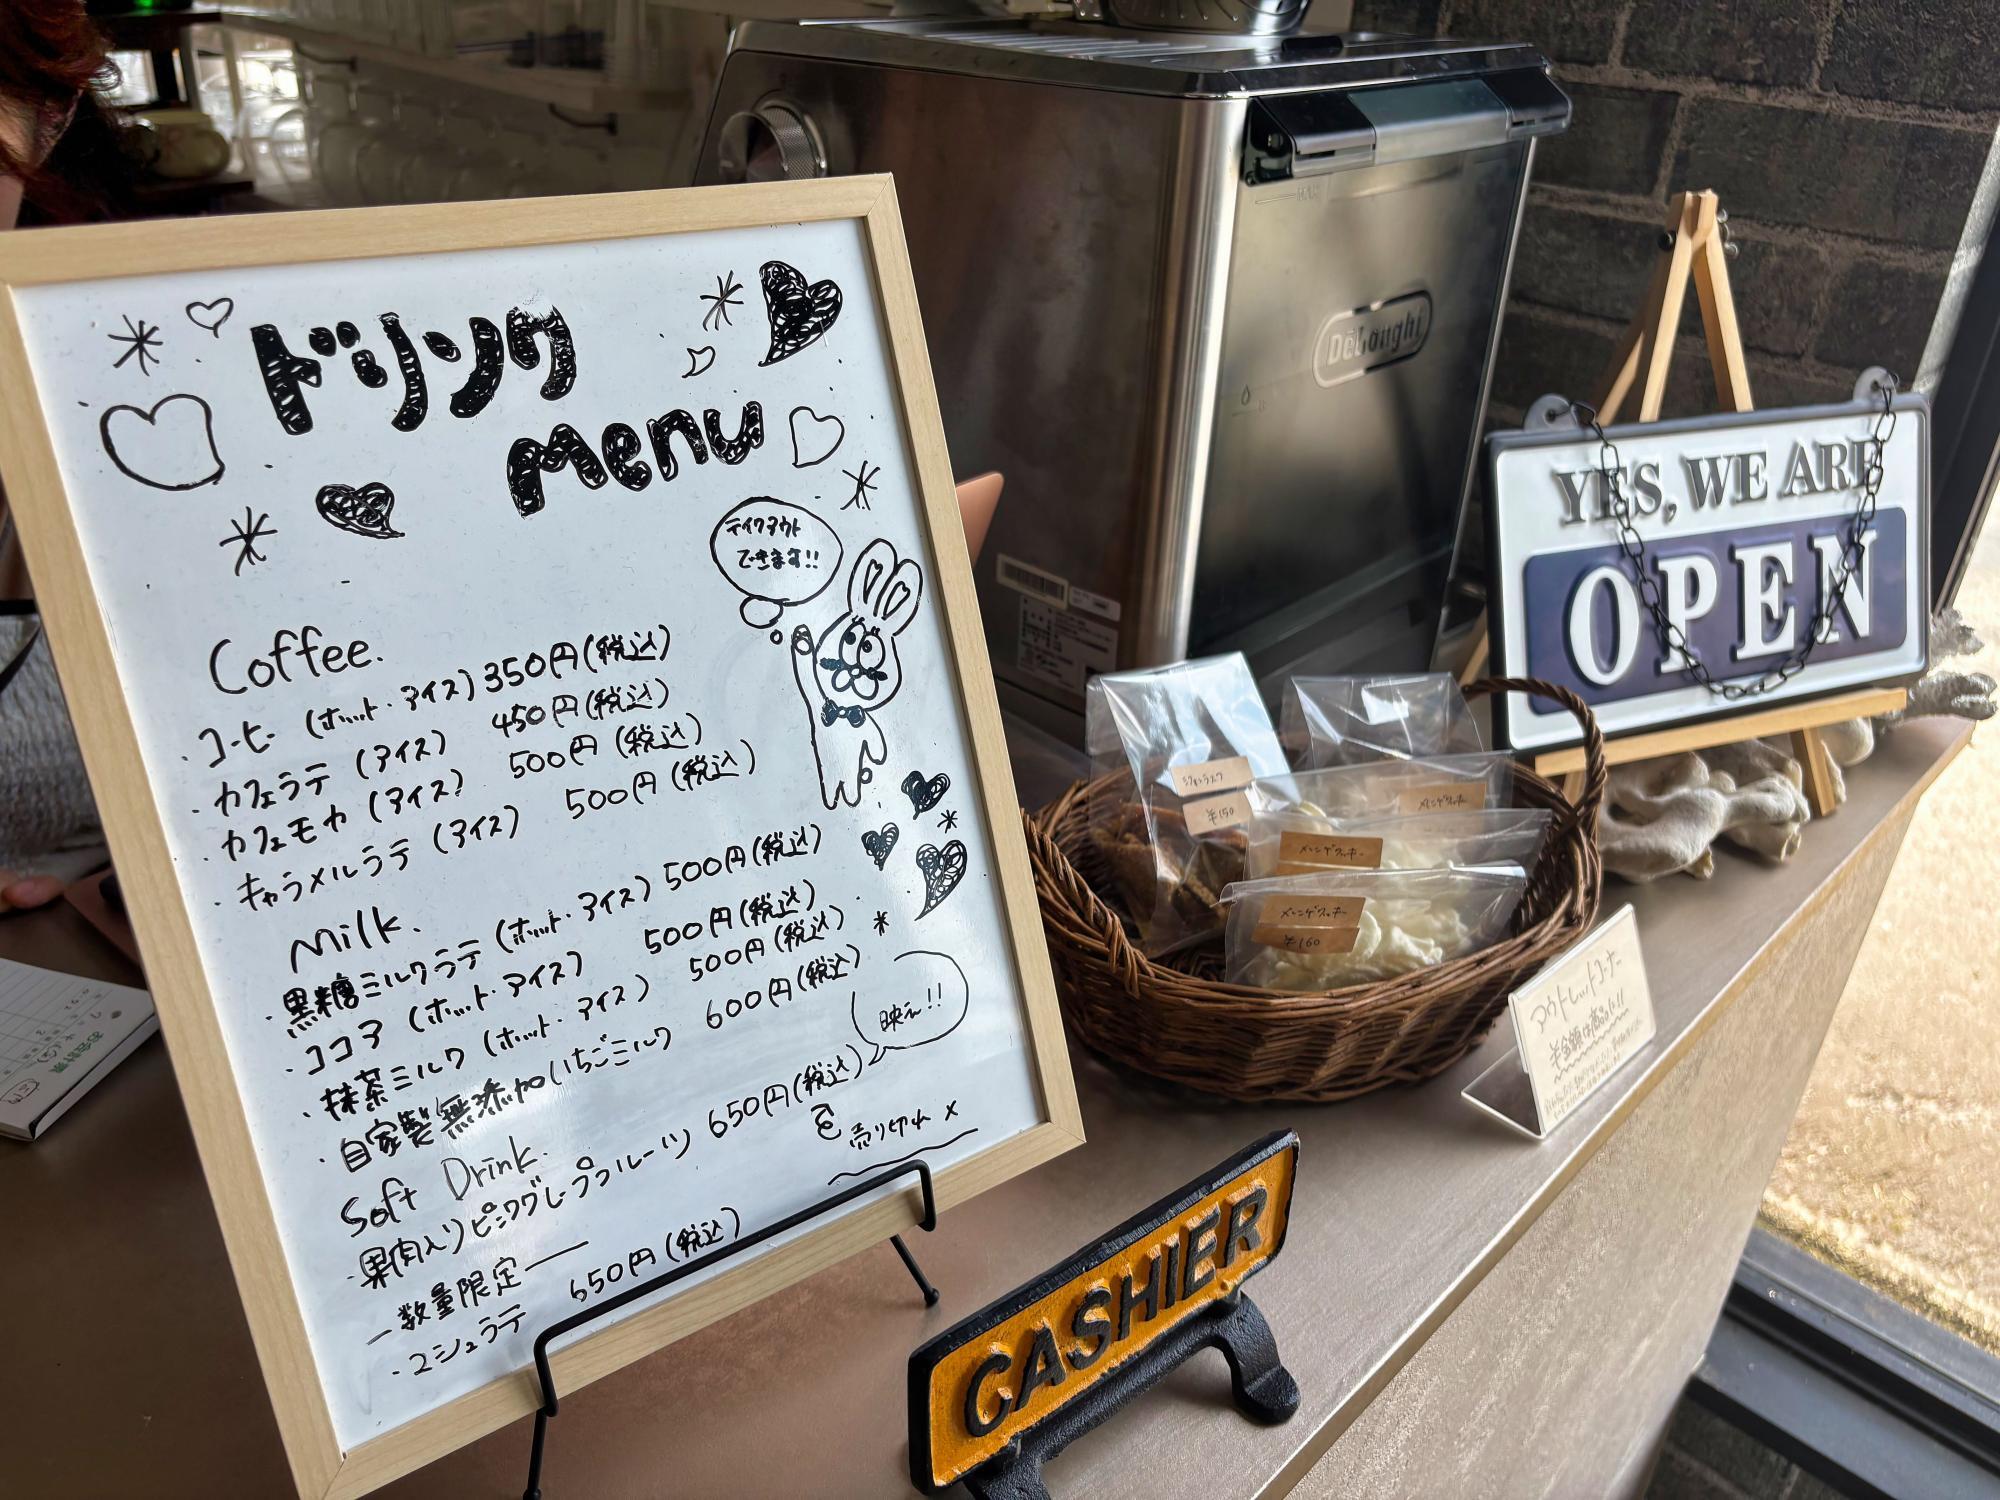 ドリンク
Menu
テイクアウト
できます!!
Coffee.
・コーヒー (ホット・アイス) 350円(税込)
・カフェラテ (アイス) 450円(税込)
・カフェモカ (アイス) 500円(税込)
・キャラメルラテ (アイス) 500円(税込)
Milk.
・黒糖ミルクラテ (ホット・アイス) 500円(税込)
・ココア (ホット・アイス) 500円(税込)
・抹茶ミルク (ホット・アイス) 500円(税込)
・自家製無添加いちごミルク 600円(税込)
映え!!
Soft Drink.
・果肉入りピンクグレープフルーツ 650円(税込)
売り切れ ×
―数量限定―
・マシュラテ 650円(税込)
DeLonghi
YES, WE ARE
OPEN
¥150
メレンゲクッキー
メレンゲクッキー
メレンゲクッキー
¥160
アウトレットコーナー
CASHIER
お会計票